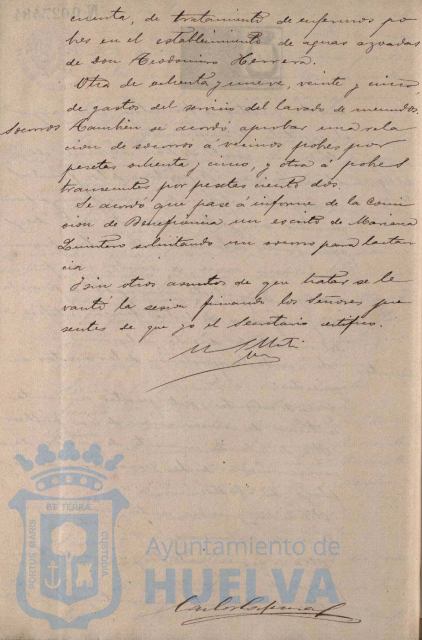 cuenta, de tratamiento de enfermos po
bres en el establecimiento de aguas azoadas
de don Teodomiro Herrera.
Otra de ochenta y nueve, veinte y cinco,
de gastos del servicio del lavado de
Socorros También se acordó aprobar una rela
cion de socorros á vecinos pobres por
pesetas ochenta y cinco, y otra á pobres
transeuntes por pesetas ciento dos.
Se acordó que pase á informe de la Comi
sion de Beneficencia un escrito de Mariana
Quintero solicitando un socorro para lactan
cia
Y sin otros asuntos de que tratar se le
vantó la sesion firmando los Señores pre
sentes de que yo el Secretario certifico.
PORTUS MARIS ET TERRÆ CUSTODIA
Ayuntamiento de
HUELVA